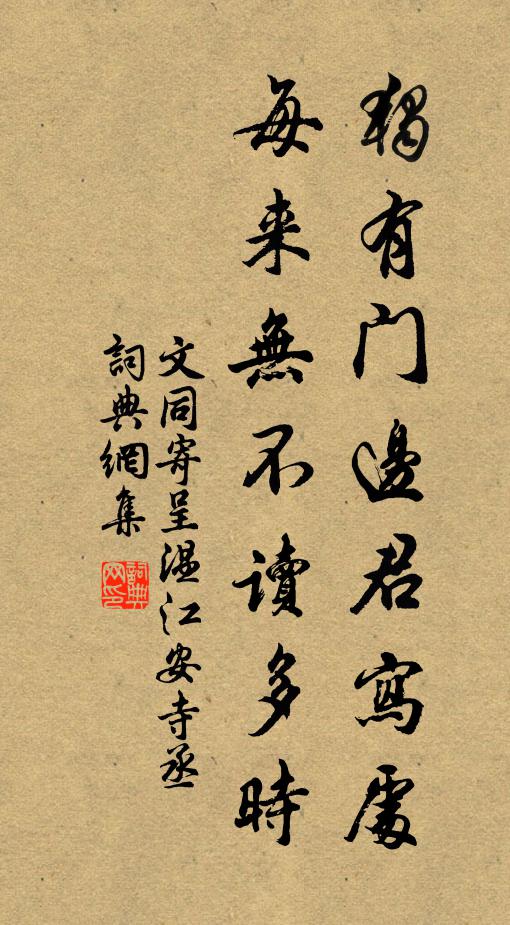 獨有門邊君寫處
每来無不讀多時
文同寄呈溫江安寺丞
詞典網集
詞典網印